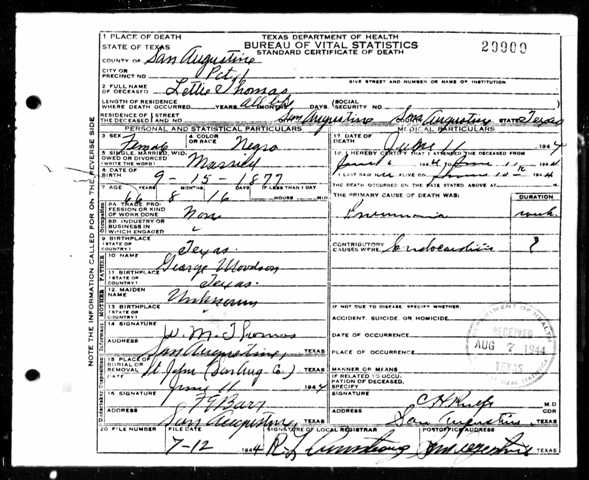 TEXAS DEPARTMENT OF HEALTH
BUREAU OF VITAL STATISTICS
STANDARD CERTIFICATE OF DEATH
1 PLACE OF DEATH
STATE OF TEXAS
COUNTY OF San Augustine
CITY OR PRECINCT NO. Pct 1
GIVE STREET AND NUMBER OR NAME OF INSTITUTION
2 FULL NAME OF DECEASED Lettie Thomas
LENGTH OF RESIDENCE WHERE DEATH OCCURRED YEARS MONTHS DAYS (SOCIAL SECURITY NO.
RESIDENCE OF THE DECEASED STREET San Augustine San Augustine STATE Texas
PERSONAL AND STATISTICAL PARTICULARS
3 SEX Female 4 COLOR OR RACE Negro
5 SINGLE, MARRIED, WIDOWED OR DIVORCED (WRITE THE WORD) Married
6 DATE OF BIRTH 9-15-1877
7 AGE YEARS MONTHS DAYS IF LESS THAN 1 DAY
66 8 16 HOURS MIN
8A TRADE, PROFESSION OR KIND OF WORK DONE None
8B INDUSTRY OR BUSINESS IN WHICH ENGAGED "
9 BIRTHPLACE (STATE OR COUNTRY) Texas
10 NAME George Woodson
11 BIRTHPLACE (STATE OR COUNTRY) Texas
12 MAIDEN NAME Unknown
13 BIRTHPLACE (STATE OR COUNTRY) "
14 SIGNATURE W. M. Thomas
ADDRESS San Augustine, TEXAS
15 PLACE OF BURIAL OR REMOVAL St John
DATE June 11 1944
16 SIGNATURE
ADDRESS San Augustine TEXAS
20 FILE NUMBER FILE DATE SIGNATURE OF LOCAL REGISTRAR POSTOFFICE ADDRESS
7-12 1944 R. L. Armstrong San Augustine TEXAS
MEDICAL PARTICULARS
17 DATE OF DEATH June 11 1944
18 I HEREBY CERTIFY THAT I ATTENDED THE DECEASED FROM
June 1944 to June 11 1944
I LAST SAW ALIVE ON June 1944
THE DEATH OCCURRED ON THE DATE STATED ABOVE AT M.
THE PRIMARY CAUSE OF DEATH WAS: DURATION
Pneumonia
CONTRIBUTORY CAUSES WERE Endocarditis ?
IF NOT DUE TO DISEASE, SPECIFY WHETHER:
ACCIDENT, SUICIDE OR HOMICIDE
DATE OF OCCURRENCE
PLACE OF OCCURRENCE
MANNER OR MEANS
IF RELATED TO OCCUPATION OF DECEASED, SPECIFY
SIGNATURE M.D.
ADDRESS San Augustine, TEXAS
RECEIVED
AUG 7 1944
TEXAS
NOTE THE INFORMATION CALLED FOR ON THE REVERSE SIDE